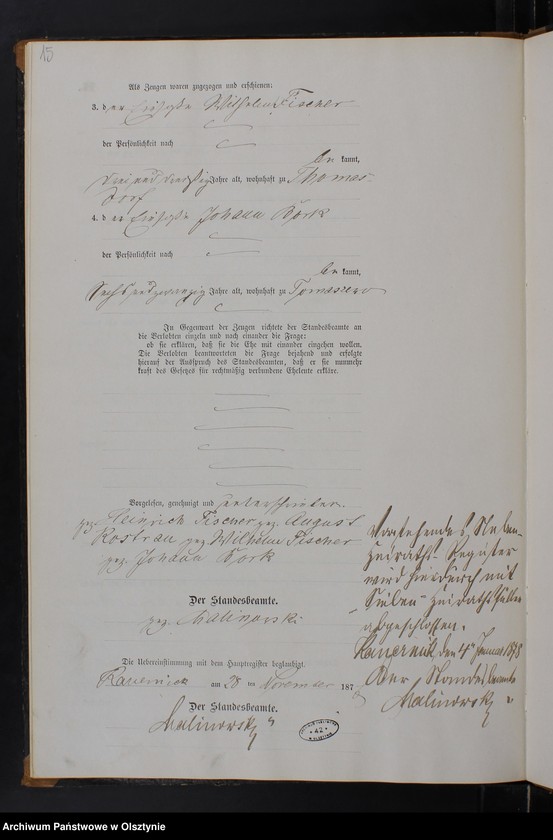 15
Als Zeugen waren zugezogen und erschienen:
3. der Wilhelm Fischer
der Persönlichkeit nach
be kannt,
dreiunddreißig Jahre alt, wohnhaft zu Thomas-
dorf
4. der Johann Bork
der Persönlichkeit nach
be kannt,
sechsundzwanzig Jahre alt, wohnhaft zu Tomaszewo
In Gegenwart der Zeugen richtete der Standesbeamte an
die Verlobten einzeln und nach einander die Frage:
ob sie erklären, daß sie die Ehe mit einander eingehen wollen.
Die Verlobten beantworteten die Frage bejahend und erfolgte
hierauf der Ausspruch des Standesbeamten, daß er sie nunmehr
kraft des Gesetzes für rechtmäßig verbundene Eheleute erkläre.
Vorgelesen, genehmigt und unterschrieben.
gez. Heinrich Fischer gez. August
gez. Wilhelm Fischer
gez. Johann Bork
Der Standesbeamte.
gez. Malinowski
Die Uebereinstimmung mit dem Hauptregister beglaubigt.
Kauernick am 28 ten November 187
Der Standesbeamte.
Malinowski
Vorstehendes Neben-
heiraths Register
wird hierdurch mit
Sieben Heirathsfällen
abgeschlossen.
Kauernick, den 4 Januar 1878
Der Standesbeamte
Malinowski
Archiwum Państwowe w Olsztynie